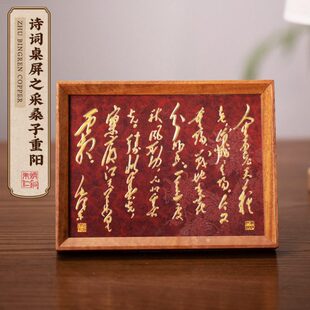 诗词桌屏之采桑子重阳
ZHU BINGREN COPPER
人生易老天难
老岁岁重阳今又
重阳战地黄花
分外香一年一度
秋风劲不似春
光胜似春光
寥廓江天万里
霜